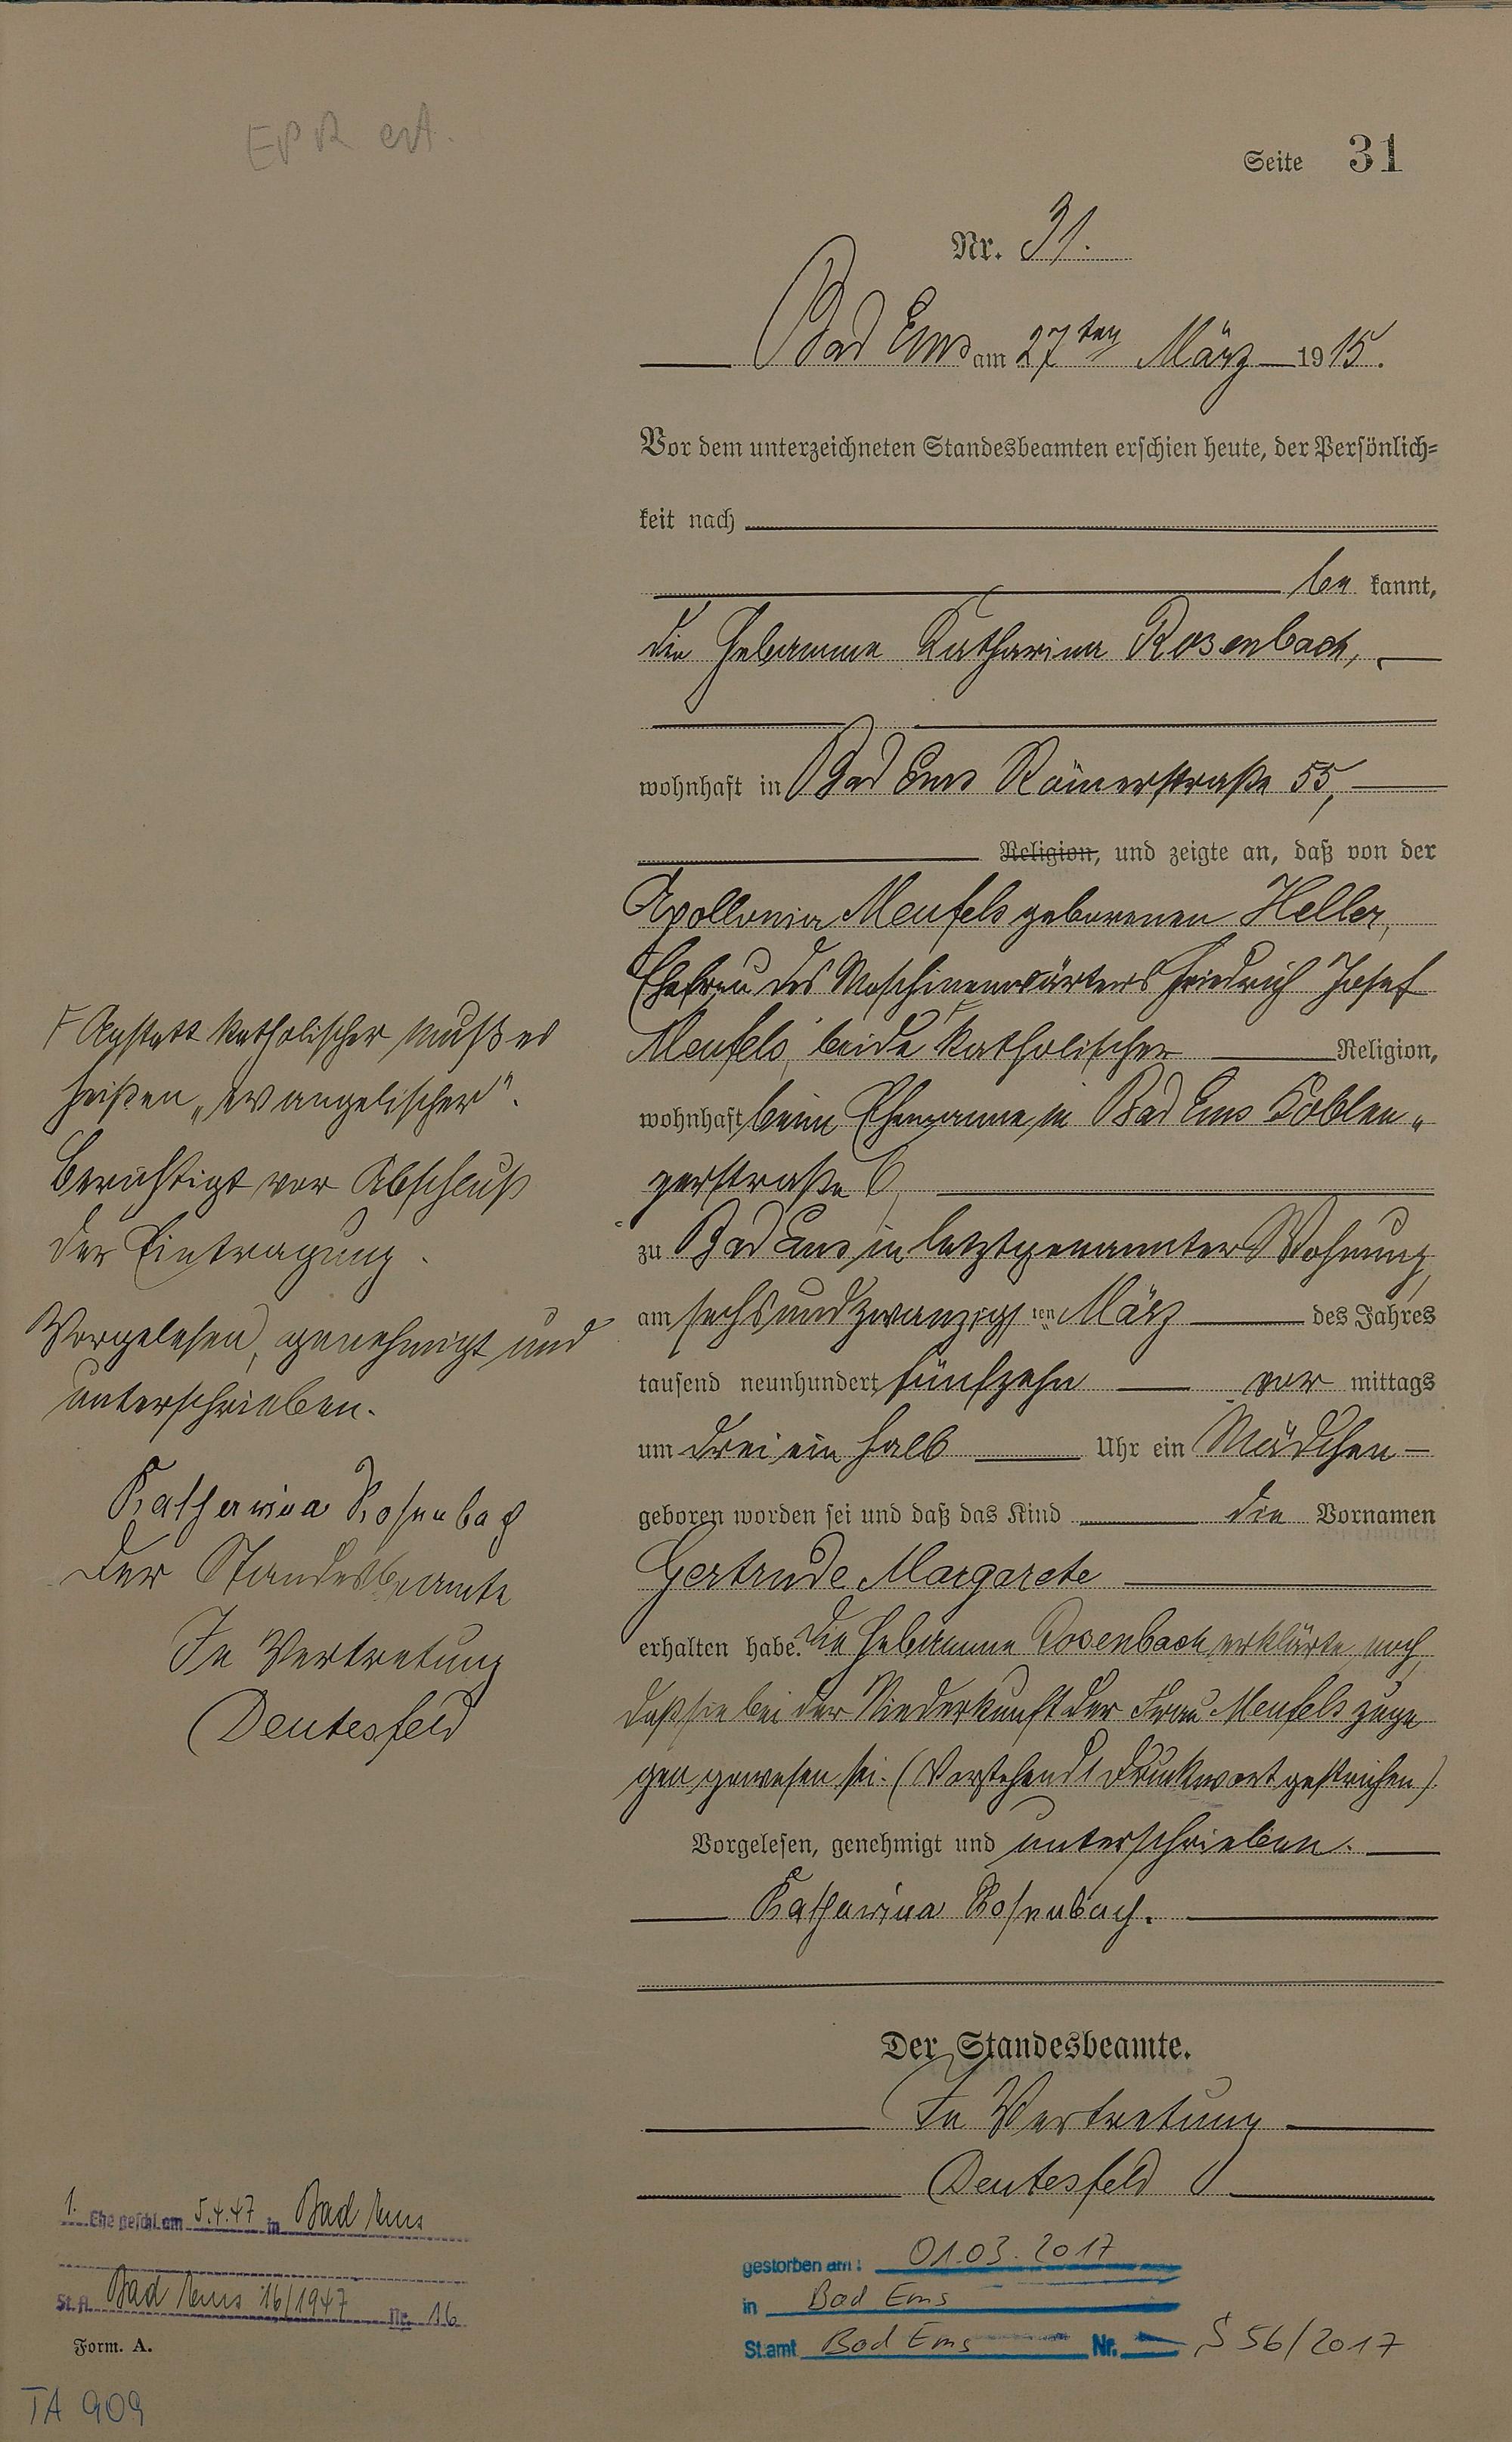 EPR ert.
Seite 31
Nr. 31.
Bad Ems am 27ten März 1915.
Vor dem unterzeichneten Standesbeamten erschien heute, der Persönlich=
keit nach
be kannt,
die Hebamme Katharina Rosenbach,
wohnhaft in Bad Ems Römerstraße 55,
Religion, und zeigte an, daß von der
Apollonia Meufels geborenen Heller,
Ehefrau des Maschinenwärters Friedrich Josef
Meufels, beide Ͱ katholischer Religion,
wohnhaft beim Ehemanne in Bad Ems Coblen„
zerstraße 6,
zu Bad Ems in letztgenannter Wohnung,
am sechsundzwanzigsten März des Jahres
tausend neunhundert fünfzehn vor mittags
um drei ein halb Uhr ein Mädchen
geboren worden sei und daß das Kind die Vornamen
Gertrude Margarete
erhalten habe. Die Hebamme Rosenbach erklärte noch,
daß sie bei der Niederkunft der Frau Meufels zuge
gen gewesen sei. (Vorstehend 1 Druckwort gestrichen).
Vorgelesen, genehmigt und unterschrieben.
Katharina Rosenbach.
Der Standesbeamte.
In Vertretung
Deutesfeld
Ͱ Anstatt katholischer muß es
heißen „evangelischer".
Berichtigt vor Abschluß
der Eintragung.
Vorgelesen, genehmigt und
unterschrieben.
Katharina Rosenbach
Der Standesbeamte
In Vertretung
Deutesfeld
1. Ehe geschl. am 5.4.47 in Bad Ems
St.A. Bad Ems 16/1947 Nr. 16
Form. A.
TA 909
gestorben am: 01.03.2017
in Bad Ems
St.amt Bad Ems Nr. S 56/2017